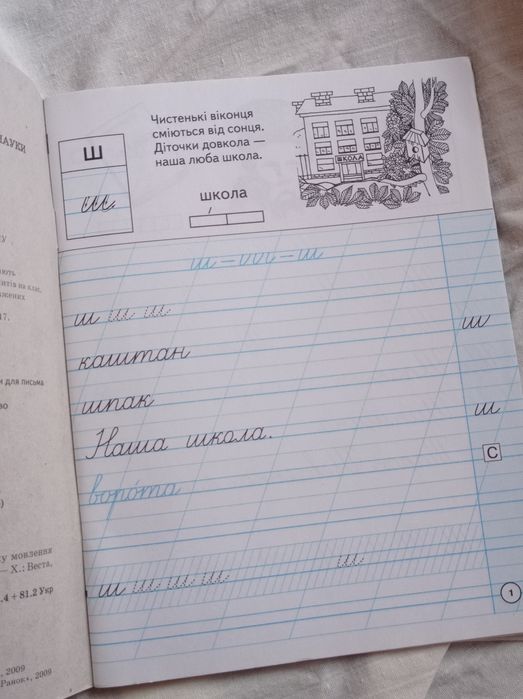 НАУКИ
ють
ритів на клас,
17.
и для письма
во
у мовлення
— Х.: Веста,
.4 + 81.2 Укр
, 2009
«Ранок», 2009
Ш
ш
Чистенькі віконця
сміються від сонця.
Діточки довкола —
наша люба школа.
ШКОЛА
школа
ш — ш
ш ш ш
ш
каштан
шпак
ш
Наша школа.
С
ворота
ш ш ш ш ш
1